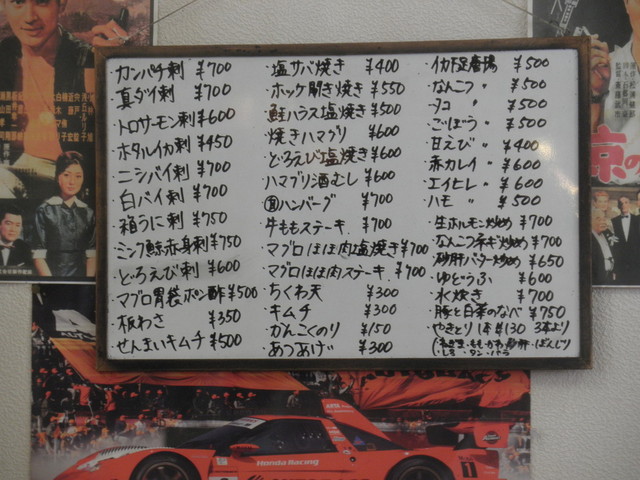 ・カンパチ刺 ¥700
・真ダイ刺 ¥700
・トロサーモン刺 ¥600
・ホタルイカ刺 ¥450
・ニシバイ刺 ¥700
・白バイ刺 ¥700
・箱うに刺 ¥750
・ミンク鯨赤身刺 ¥750
・どろえび刺 ¥600
・マグロ胃袋ポン酢 ¥500
・板わさ ¥350
・せんまいキムチ ¥500
・塩サバ焼き ¥400
・ホッケ開き焼き ¥550
・鮭ハラス塩焼き ¥500
・焼きハマグリ ¥600
・どろえび塩焼き ¥600
・ハマグリ酒むし ¥600
・ハンバーグ ¥700
・牛ももステーキ ¥700
・マグロほほ肉塩焼き ¥700
・マグロほほ肉ステーキ ¥700
・ちくわ天 ¥300
・キムチ ¥300
・かんこくのり ¥150
・あつあげ ¥300
・イカ下足唐揚 ¥500
・なんこつ 〃 ¥500
・タコ 〃 ¥500
・ごぼう 〃 ¥500
・甘えび 〃 ¥400
・赤カレイ 〃 ¥600
・エイヒレ 〃 ¥600
・ハモ 〃 ¥500
・生ホルモン炒め ¥700
・なんこつネギ炒め ¥700
・砂肝バター炒め ¥650
・ゆどうふ ¥600
・水炊き ¥700
・豚と白菜のなべ ¥750
・やきとり 1本 ¥130 3本より
(・ねぎま・もも・かわ・砂肝・ぼんじり
・しろ・タン・バラ
Honda Racing
1